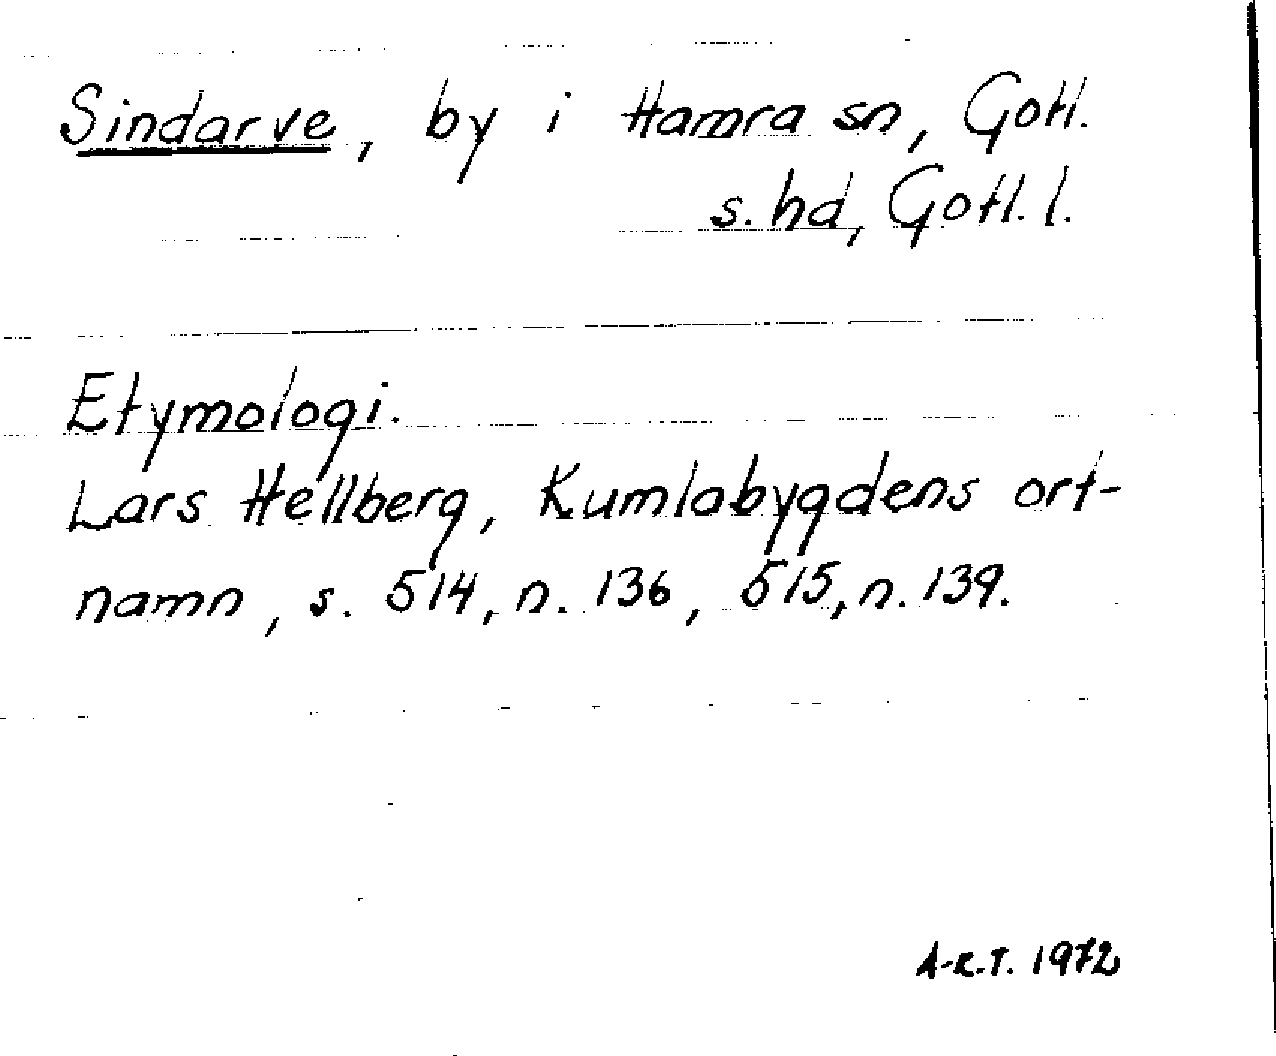 Sindarve, by i Hamra sn, Gotl.
s. hd, Gotl. l.
Etymologi.
Lars Hellberg, Kumlabygdens ort-
namn, s. 514, n. 136, 515, n. 139.
A-K.T. 1972